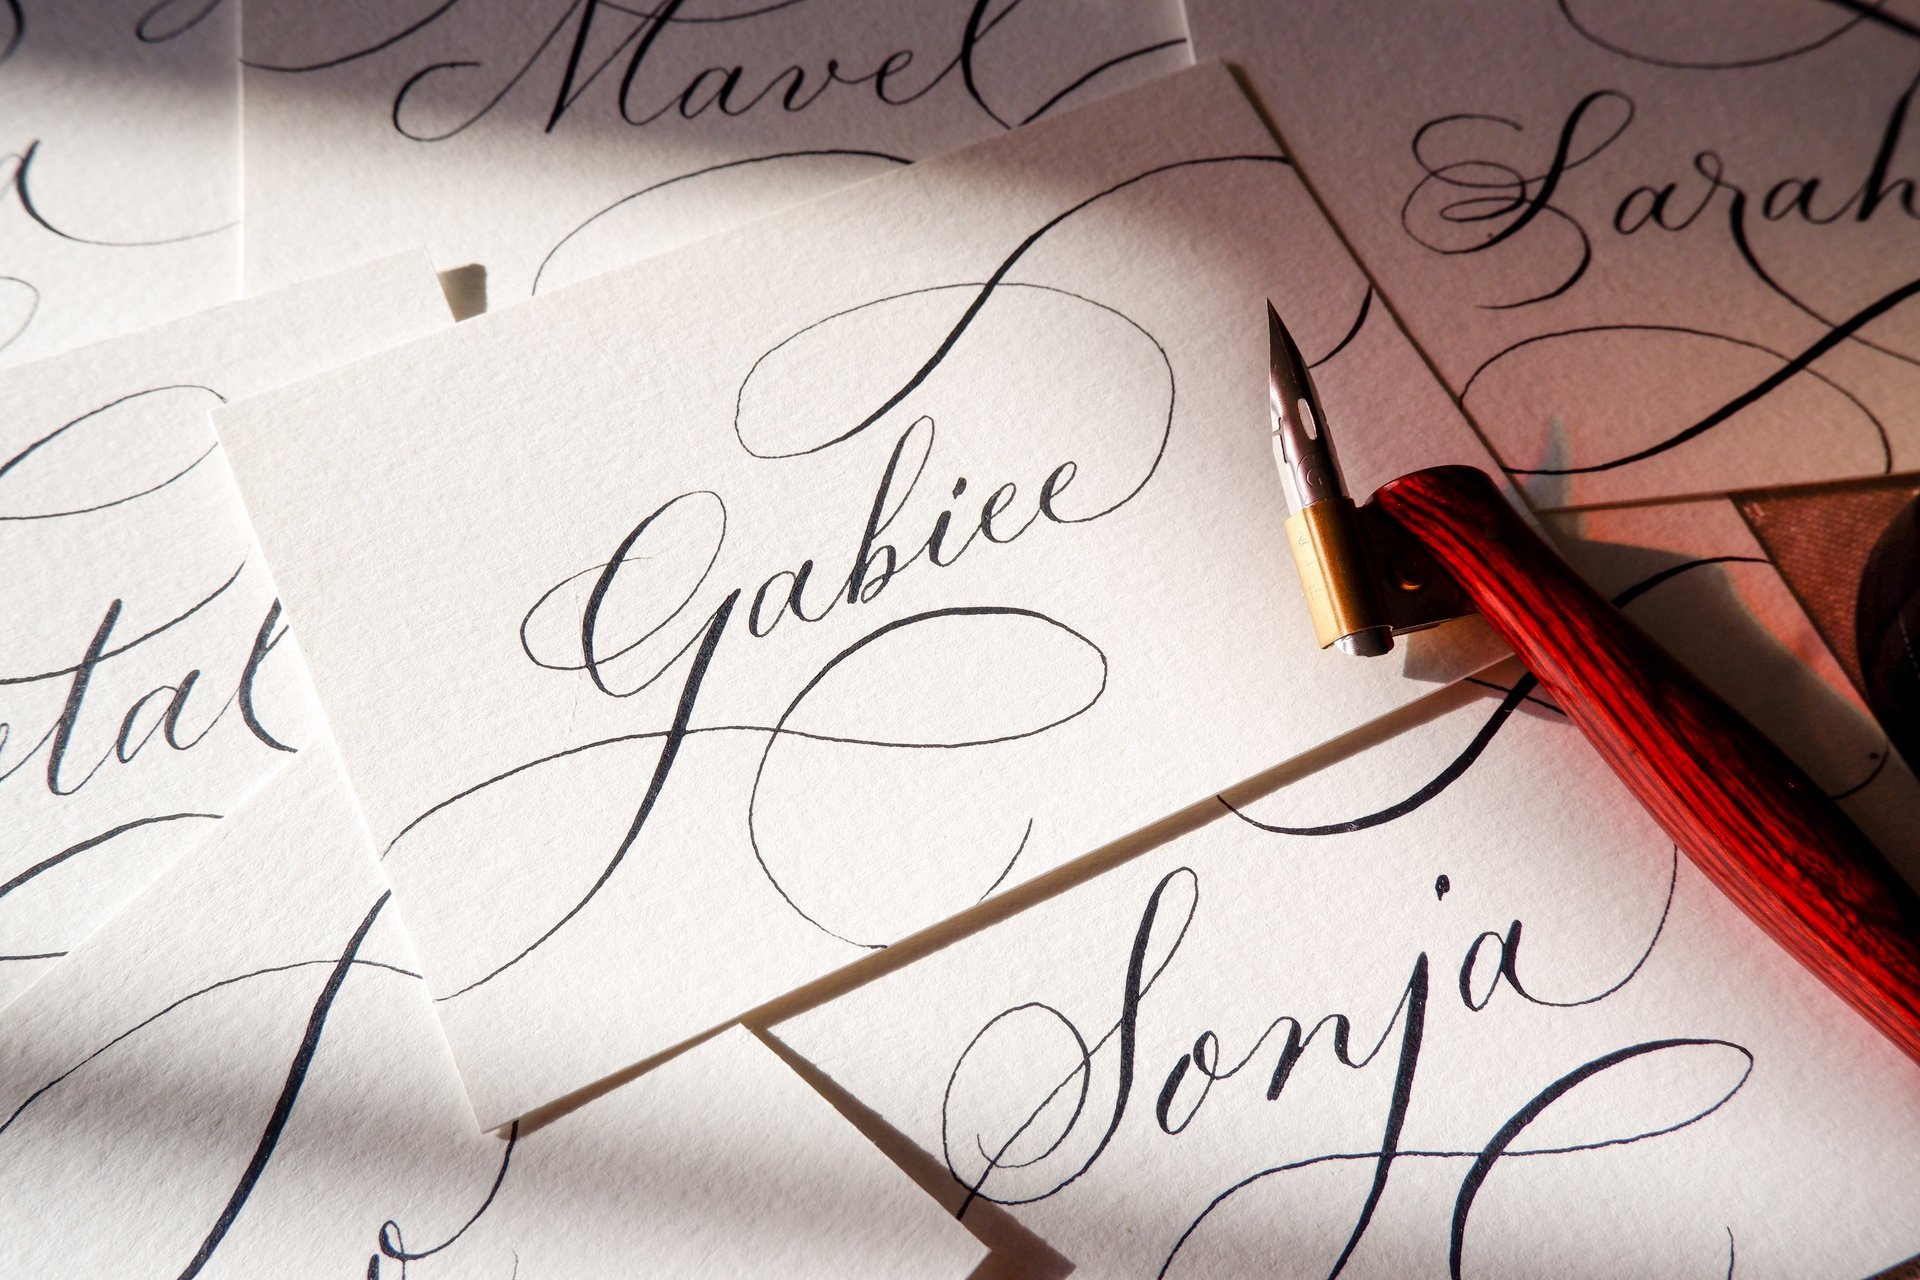 Mavel
Sarah
Gabiee
Sonja